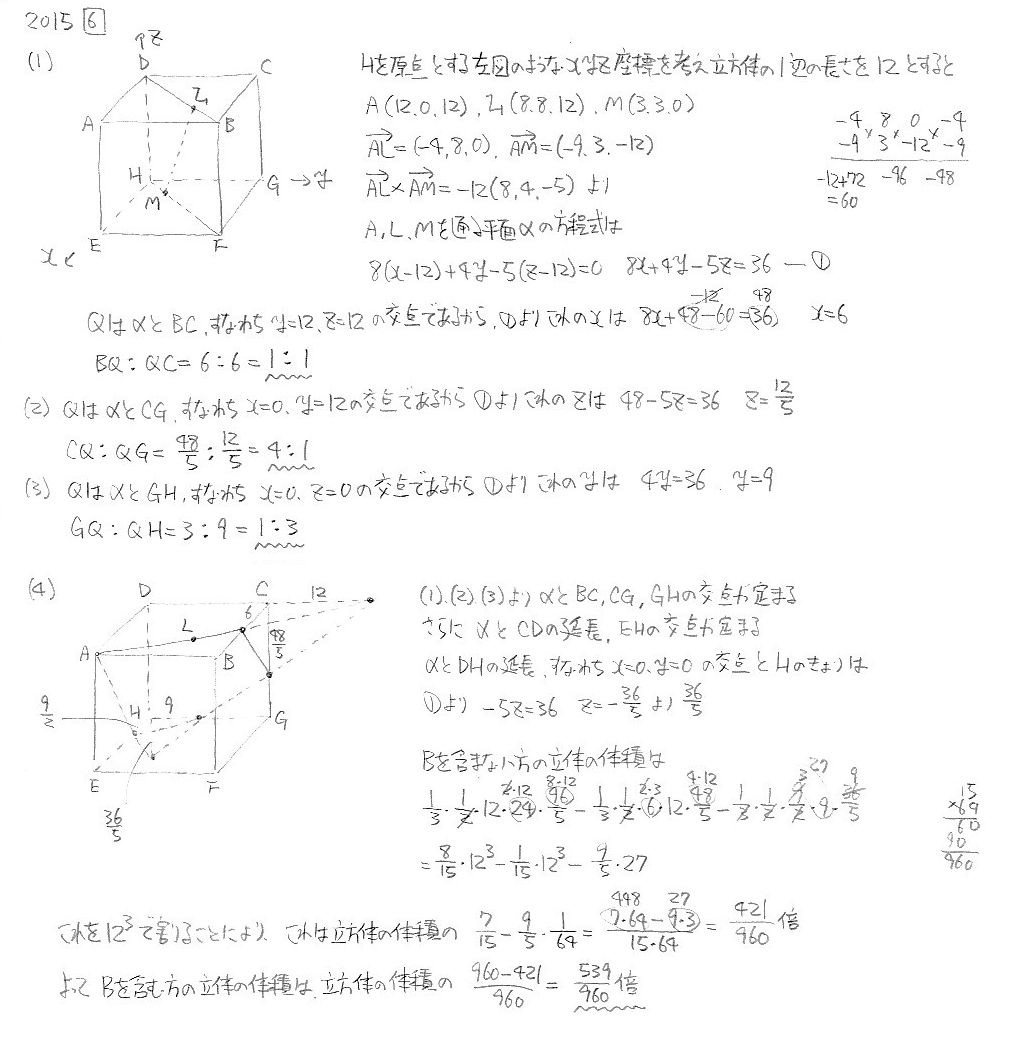 2015 6
(1)
↑z
D
C
L
A
B
H
G →y
M
E
F
x↙
Hを原点とする左図のようなxyz座標を考え立方体の1辺の長さを12とすると
A(12,0,12), L(8,8,12), M(3,3,0)
AL=(-4,8,0), AM=(-9,3,-12)
AL×AM=-12(8,4,-5)より
A,L,Mを通る平面αの方程式は
8(x-12)+4y-5(z-12)=0 8x+4y-5z=36 ―①
-4 8 0 -4
-9 3 -12 -9
-12+72 -96 -48
=60
QはαとBC,すなわちy=12,z=12の交点であるから,①よりこれのxは 8x+48-60=36 x=6
-12 48
BQ:QC=6:6=1:1
(2) QはαとCG,すなわちx=0,y=12の交点であるから①よりこれのzは 48-5z=36 z=12/5
CQ:QG=48/5:12/5=4:1
(3) QはαとGH,すなわちx=0,z=0の交点であるから①よりこれのyは 4y=36, y=9
GQ:QH=3:9=1:3
(4)
D
C
12
L
6
A
B
48/5
9/2
H
9
G
E
F
36/5
(1),(2),(3)よりαとBC,CG,GHの交点が定まる
さらにαとCDの延長,EHの交点が定まる
αとDHの延長,すなわちx=0,y=0の交点とHのきょりは
①より -5z=36 z=-36/5より36/5
Bを含まない方の立体の体積は
2·12 8·12 2·3 4·12 3 27 9
1/3·1/2·12·24·96/5-1/3·1/2·6·12·48/5-1/3·1/2·9/2·9·36/5
=8/15·12³-1/15·12³-9/5·27
15
×64
60
90
960
これを12³で割ることにより,これは立方体の体積の 7/15-9/5·1/64=(7·64-9·3)/(15·64)=421/960倍
448 27
よってBを含む方の立体の体積は,立方体の体積の (960-421)/960=539/960倍